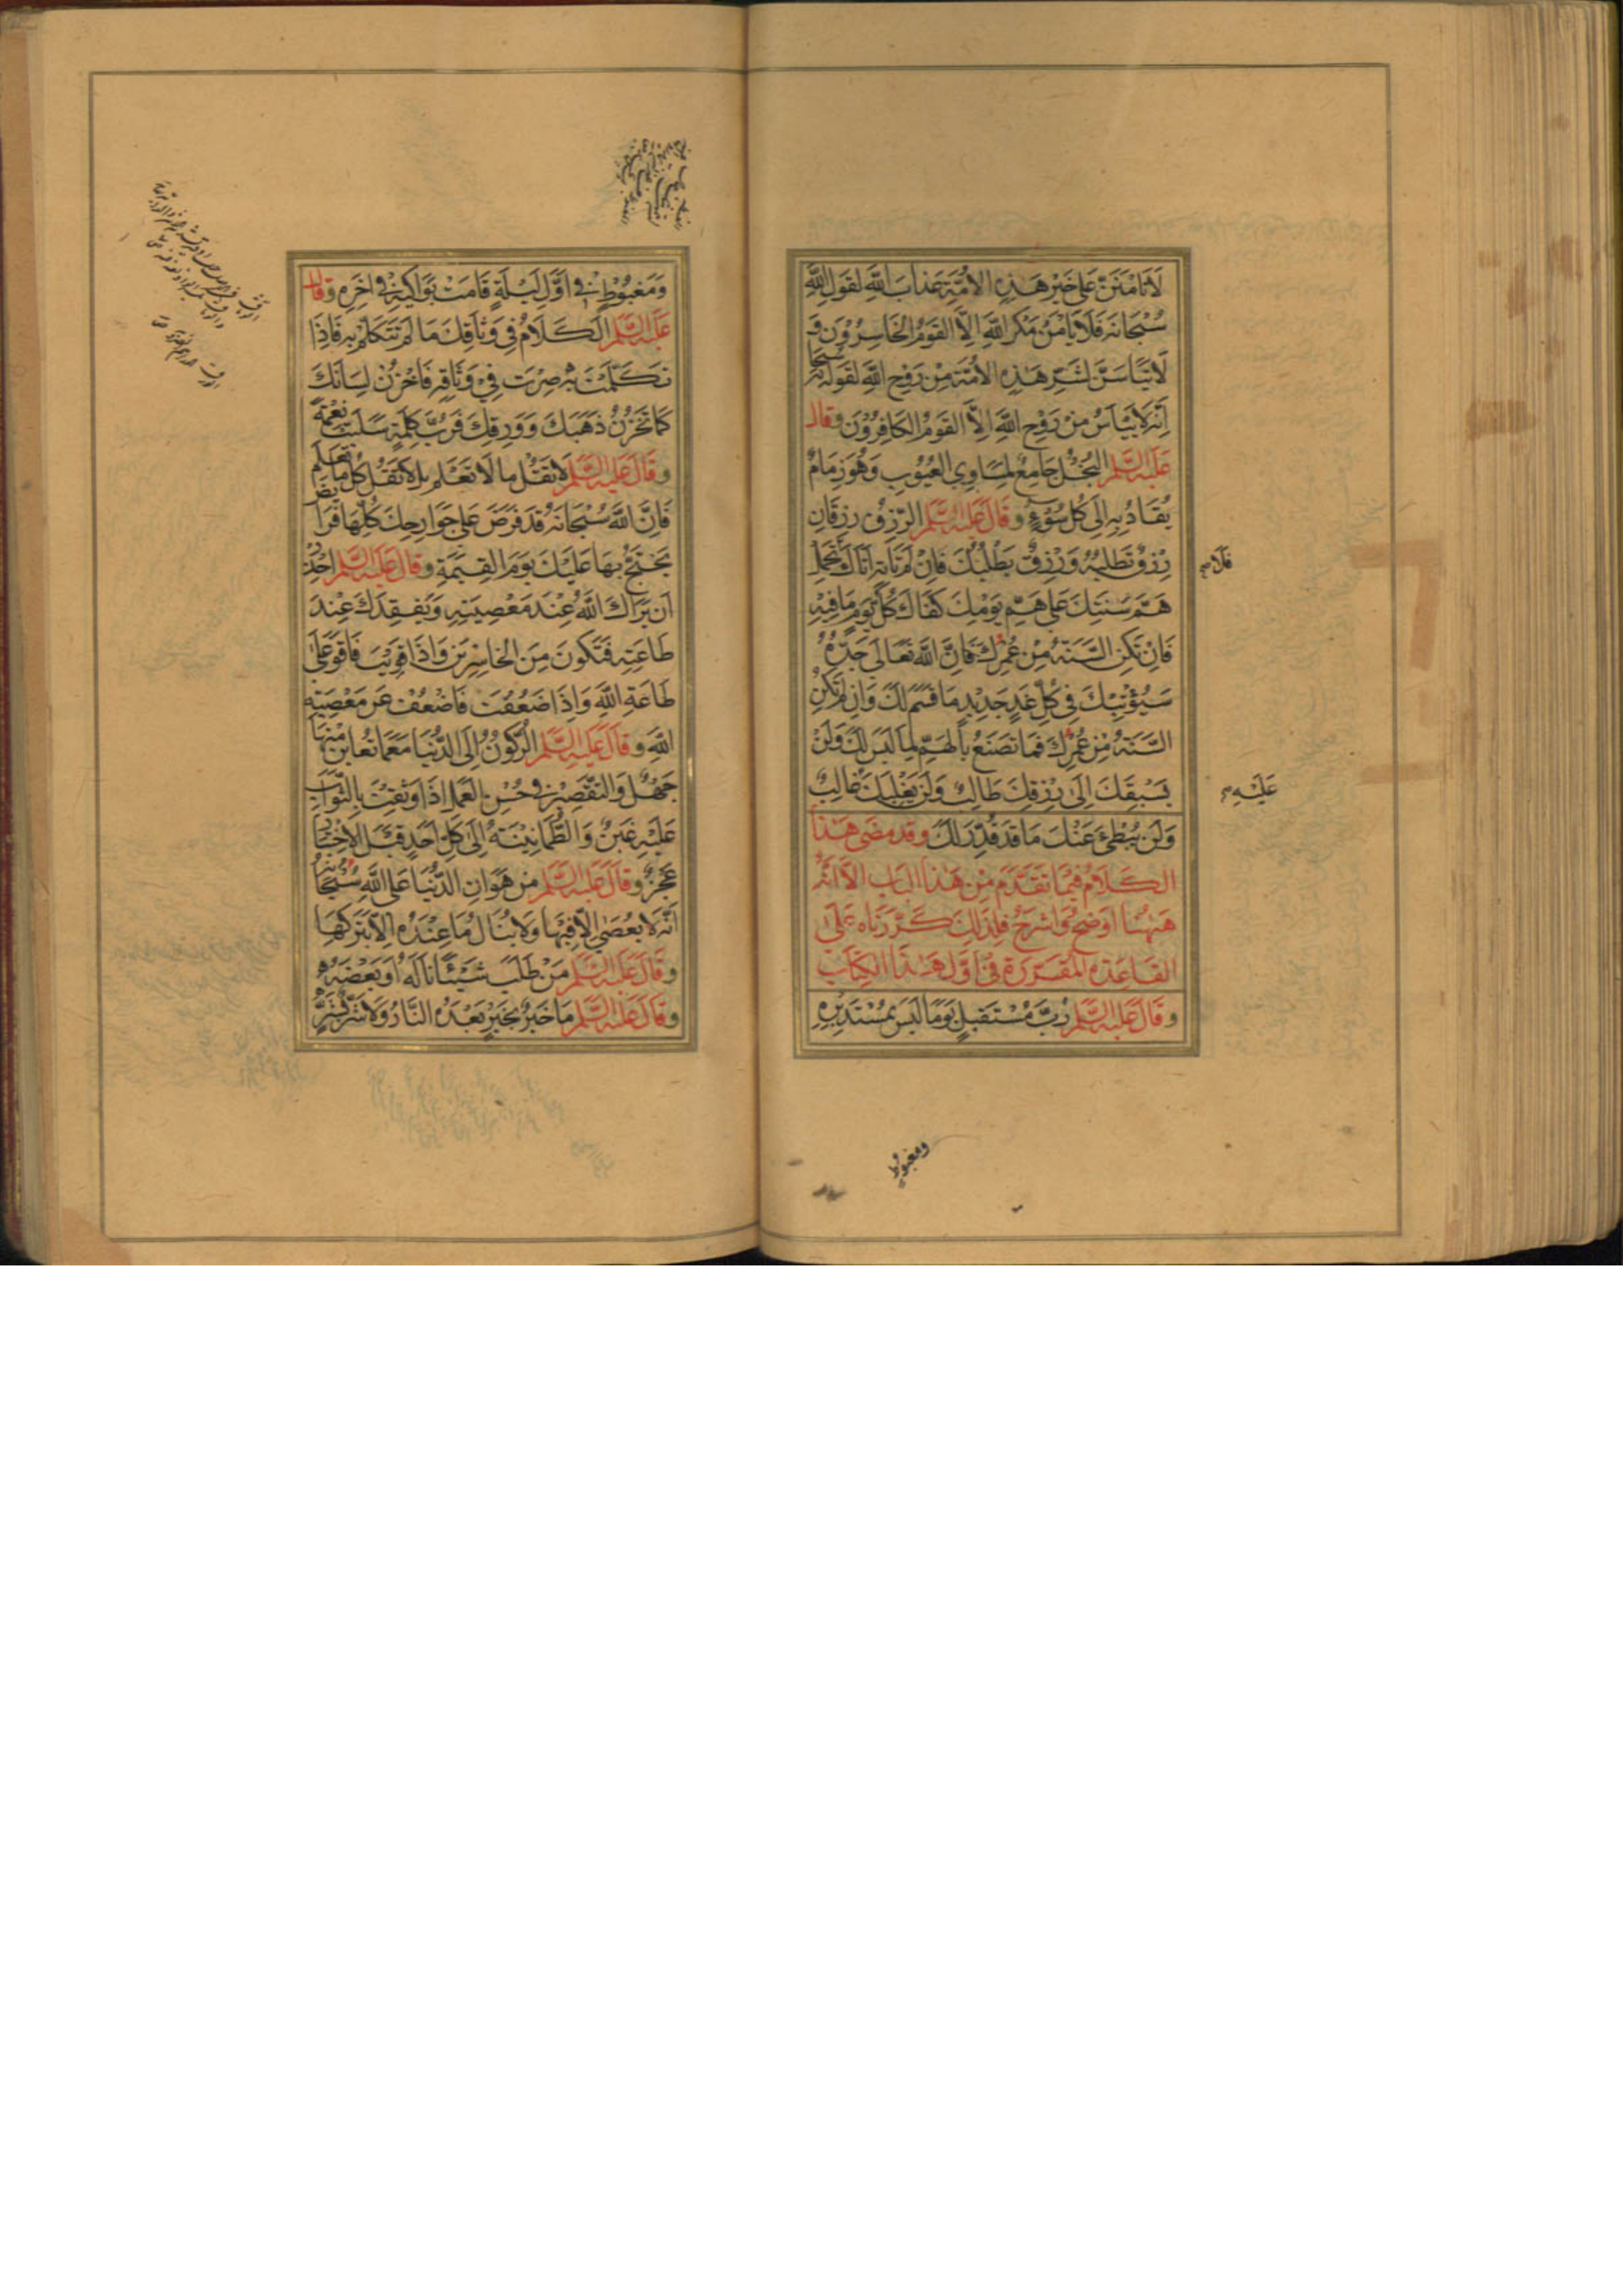 لَا تَأْمَنَنَّ عَلَى خَيْرِ هَذِهِ الْأُمَّةِ عَذَابَ اللَّهِ لِقَوْلِ اللَّهِ
سُبْحَانَهُ فَلَا يَأْمَنُ مَكْرَ اللَّهِ إِلَّا الْقَوْمُ الْخَاسِرُونَ وَ
لَا تَيْأَسَنَّ لِشَرِّ هَذِهِ الْأُمَّةِ مِنْ رَوْحِ اللَّهِ لِقَوْلِهِ سُبْحَانَهُ
إِنَّهُ لَا يَيْأَسُ مِنْ رَوْحِ اللَّهِ إِلَّا الْقَوْمُ الْكَافِرُونَ وقال
عَلَيْهِ السَّلَم الْبُخْلُ جَامِعٌ لِمَسَاوِي الْعُيُوبِ وَهُوَ زِمَامٌ
يُقَادُ بِهِ إِلَى كُلِّ سُوءٍ وَقَالَ عَلَيْهِ السَّلَم الرِّزْقُ رِزْقَانِ
رِزْقٌ تَطْلُبُهُ وَرِزْقٌ يَطْلُبُكَ فَإِنْ لَمْ تَأْتِهِ أَتَاكَ تَحْمِلْ
فَلَا
هَمَّ سَنَتِكَ عَلَى هَمِّ يَوْمِكَ كَفَاكَ كُلُّ يَوْمٍ مَا فِيهِ
فَإِنْ تَكُنِ السَّنَةُ مِنْ عُمُرِكَ فَإِنَّ اللَّهَ تَعَالَى جَدُّهُ
سَيُؤْتِيكَ فِي كُلِّ غَدٍ جَدِيدٍ مَا قَسَمَ لَكَ وَإِنْ لَمْ تَكُنِ
السَّنَةُ مِنْ عُمُرِكَ فَمَا تَصْنَعُ بِالْهَمِّ لِمَا لَيْسَ لَكَ وَلَنْ
يَسْبِقَكَ إِلَى رِزْقِكَ طَالِبٌ وَلَنْ يَغْلِبَكَ غَالِبٌ
عَلَيْهِ
وَلَنْ يُبْطِئَ عَنْكَ مَا قَدْ قُدِّرَ لَكَ وقد مضى هَذَا
الْكَلَامُ فِيمَا تَقَدَّمَ مِنْ هَذَا الْبَابِ إِلَّا أَنَّهُ
هَهُنَا أَوْضَحُ وَأَشْرَحُ فَلِذَلِكَ كَرَّرْنَاهُ عَلَى
الْقَاعِدَةِ الْمُقَرَّرَةِ فِي أَوَّلِ هَذَا الْكِتَابِ
وَقَالَ عَلَيْهِ السَّلَم رُبَّ مُسْتَقْبِلٍ يَوْمًا لَيْسَ بِمُسْتَدْبِرِهِ
ومغبوط
وَمَغْبُوطٍ فِي أَوَّلِ لَيْلَةٍ قَامَتْ بَوَاكِيهِ فِي آخِرِهِ وقال
عَلَيْهِ السَّلَم الْكَلَامُ فِي وَثَاقِكَ مَا لَمْ تَتَكَلَّمْ بِهِ فَإِذَا
تَكَلَّمْتَ بِهِ صِرْتَ فِي وَثَاقِهِ فَاخْزُنْ لِسَانَكَ
كَمَا تَخْزُنُ ذَهَبَكَ وَوَرِقَكَ فَرُبَّ كَلِمَةٍ سَلَبَتْ نِعْمَةً
وَقَالَ عَلَيْهِ السَّلَم لَا تَقُلْ مَا لَا تَعْلَمُ بَلْ لَا تَقُلْ كُلَّ مَا تَعْلَمُ
فَإِنَّ اللَّهَ سُبْحَانَهُ قَدْ فَرَضَ عَلَى جَوَارِحِكَ كُلِّهَا فَرَايض
يَحْتَجُّ بِهَا عَلَيْكَ يَوْمَ الْقِيمَةِ وَقَالَ عَلَيْهِ السَّلَم احْذَرْ
أَنْ يَرَاكَ اللَّهُ عِنْدَ مَعْصِيَتِهِ وَيَفْقِدَكَ عِنْدَ
طَاعَتِهِ فَتَكُونَ مِنَ الْخَاسِرِينَ وَإِذَا قَوِيتَ فَاقْوَ عَلَى
طَاعَةِ اللَّهِ وَإِذَا ضَعُفْتَ فَاضْعُفْ عَنْ مَعْصِيَةِ
اللَّهِ وَقَالَ عَلَيْهِ السَّلَم الرُّكُونُ إِلَى الدُّنْيَا مَعَ مَا تُعَايِنُ مِنْهَا
جَهْلٌ وَالتَّقْصِيرُ فِي حُسْنِ الْعَمَلِ إِذَا وَثِقْتَ بِالثَّوَابِ
عَلَيْهِ غَبْنٌ وَالطُّمَأْنِينَةُ إِلَى كُلِّ أَحَدٍ قَبْلَ الِاخْتِبَارِ
عَجْزٌ وَقَالَ عَلَيْهِ السَّلَم مِنْ هَوَانِ الدُّنْيَا عَلَى اللَّهِ سُبْحَانَهُ
أَنَّهُ لَا يُعْصَى إِلَّا فِيهَا وَلَا يُنَالُ مَا عِنْدَهُ إِلَّا بِتَرْكِهَا
وَقَالَ عَلَيْهِ السَّلَم مَنْ طَلَبَ شَيْئًا نَالَهُ أَوْ بَعْضَهُ
وَقَالَ عَلَيْهِ السَّلَم مَا خَيْرٌ بِخَيْرٍ بَعْدَهُ النَّارُ وَلَا شَرٌّ بِشَرٍّ